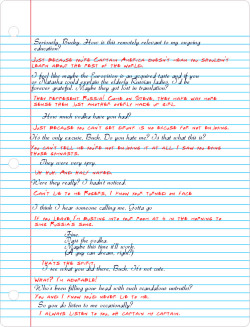 Seriously, Bucky. How is this remotely relevant to my ongoing
education?
Just because you're Captain America doesn't mean you shouldn't
learn about the rest of the world.
I feel like maybe the Eurovision is an acquired taste and if you
or Natasha could explain the elderly Russian ladies, I'd be
forever grateful. Maybe they got lost in translation?
They represent Russia! Come on Steve, they make way more
sense than just another group made up of
How much vodka have you had?
Just because you can't get drunk is no excuse for not enjoying.
It's the only excuse, Buck. Do you hate me? Is that what this is?
You can't tell me you're not enjoying it at all. I saw you eying
those gymnasts.
They were very spry.
Uh huh. And half naked.
Were they really? I hadn't noticed.
Can't lie to me Rogers, I know your turned on face
I think I hear someone calling me. Gotta go
If you leave I'm busting into your room at 4 in the morning to
sing Russia's song.
Fine.
Pass the vodka.
Maybe this time it'll work.
(A guy can dream, right?)
That's the spirit.
I see what you did there, Buck. It's not cute.
What? I'm adorable!
Who's been filling your head with such scandalous untruths?
You and I know you'd never lie to me.
So you do listen to me occasionally?
I always listen to you, my captain my captain.